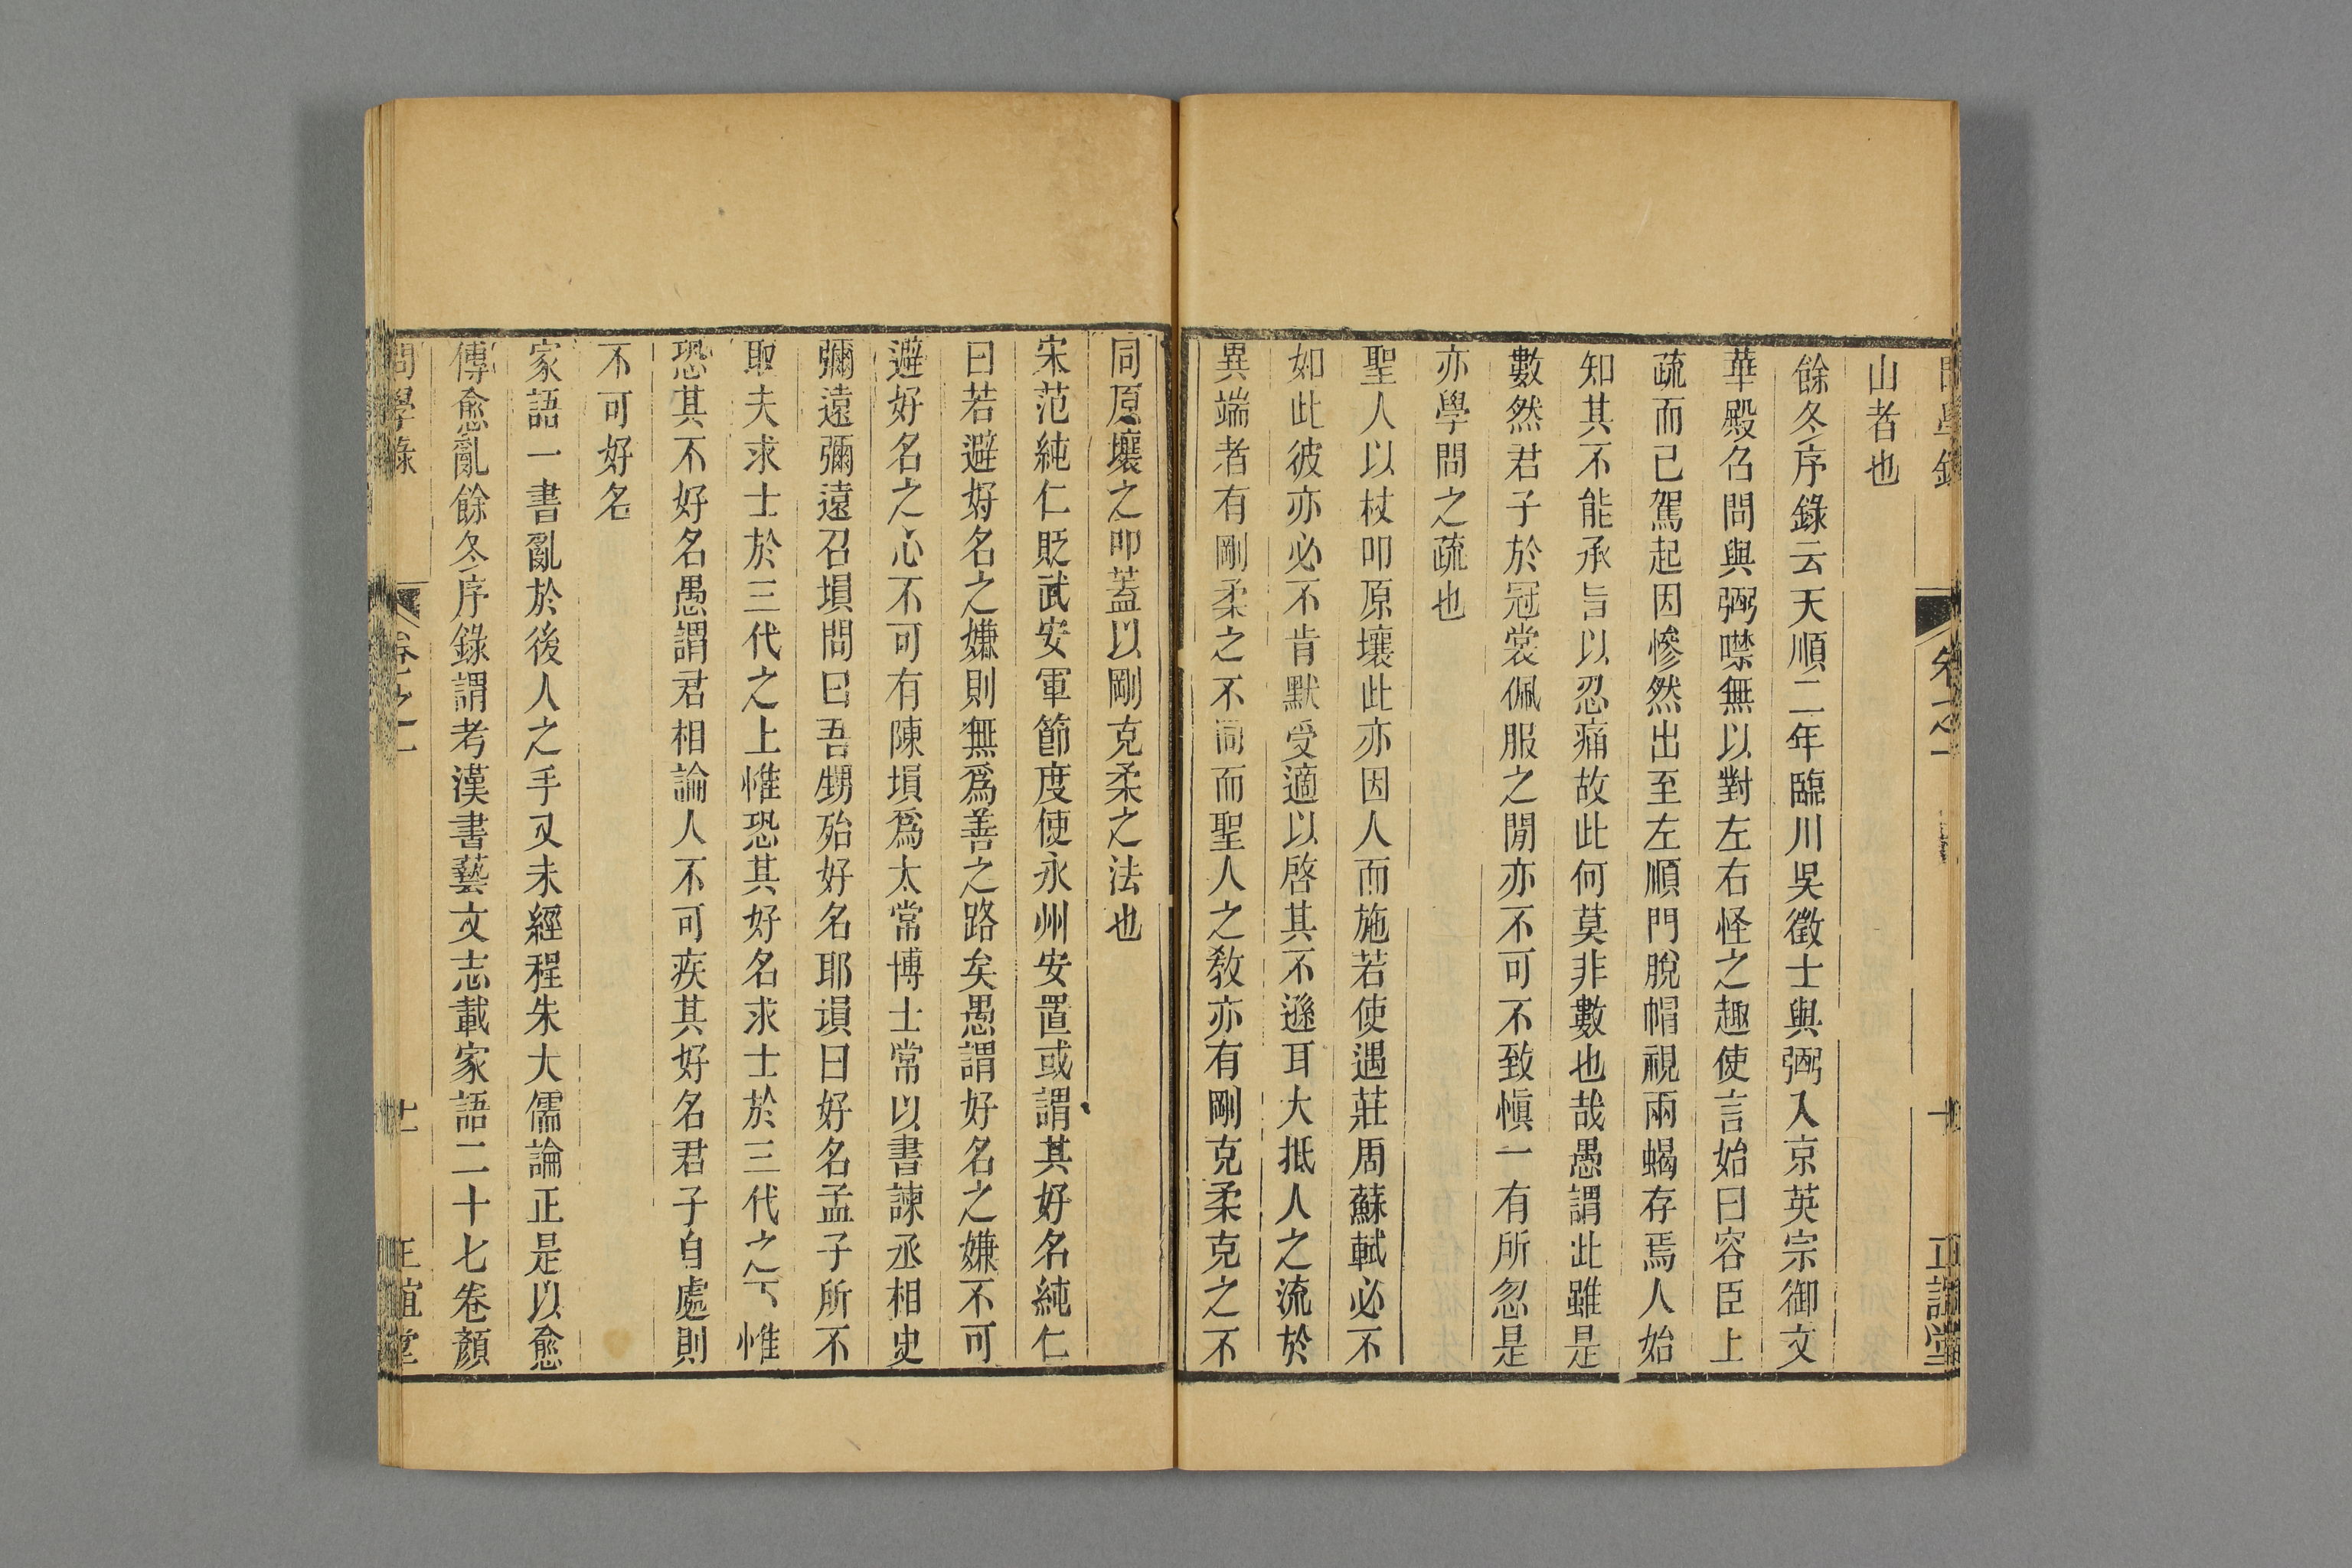 問學錄 卷之一 十 正誼堂
山者也
餘冬序錄云天順二年臨川吳徵士與弼入京英宗御文
華殿召問與弼噤無以對左右怪之趣使言始曰容臣上
疏而已駕起因慘然出至左順門脫帽視兩蝎存焉人始
知其不能承旨以忍痛故此何莫非數也哉愚謂此雖是
數然君子於冠裳佩服之閒亦不可不致愼一有所忽是
亦學問之疏也
聖人以杖叩原壤此亦因人而施若使遇莊周蘇軾必不
如此彼亦必不肯默受適以啓其不遜耳大抵人之流於
異端者有剛柔之不同而聖人之敎亦有剛克柔克之不
同原壤之叩蓋以剛克柔之法也
宋范純仁貶武安軍節度使永州安置或謂其好名純仁
曰若避好名之嫌則無爲善之路矣愚謂好名之嫌不可
避好名之心不可有陳塤爲太常博士常以書諫丞相史
彌遠彌遠召塤問曰吾甥殆好名耶塤曰好名孟子所不
取夫求士於三代之上惟恐其好名求士於三代之下惟
恐其不好名愚謂君相論人不可疾其好名君子自處則
不可好名
家語一書亂於後人之手又未經程朱大儒論正是以愈
傳愈亂餘冬序錄謂考漢書藝文志載家語二十七卷顏
問學錄 卷之一 十一 正誼堂